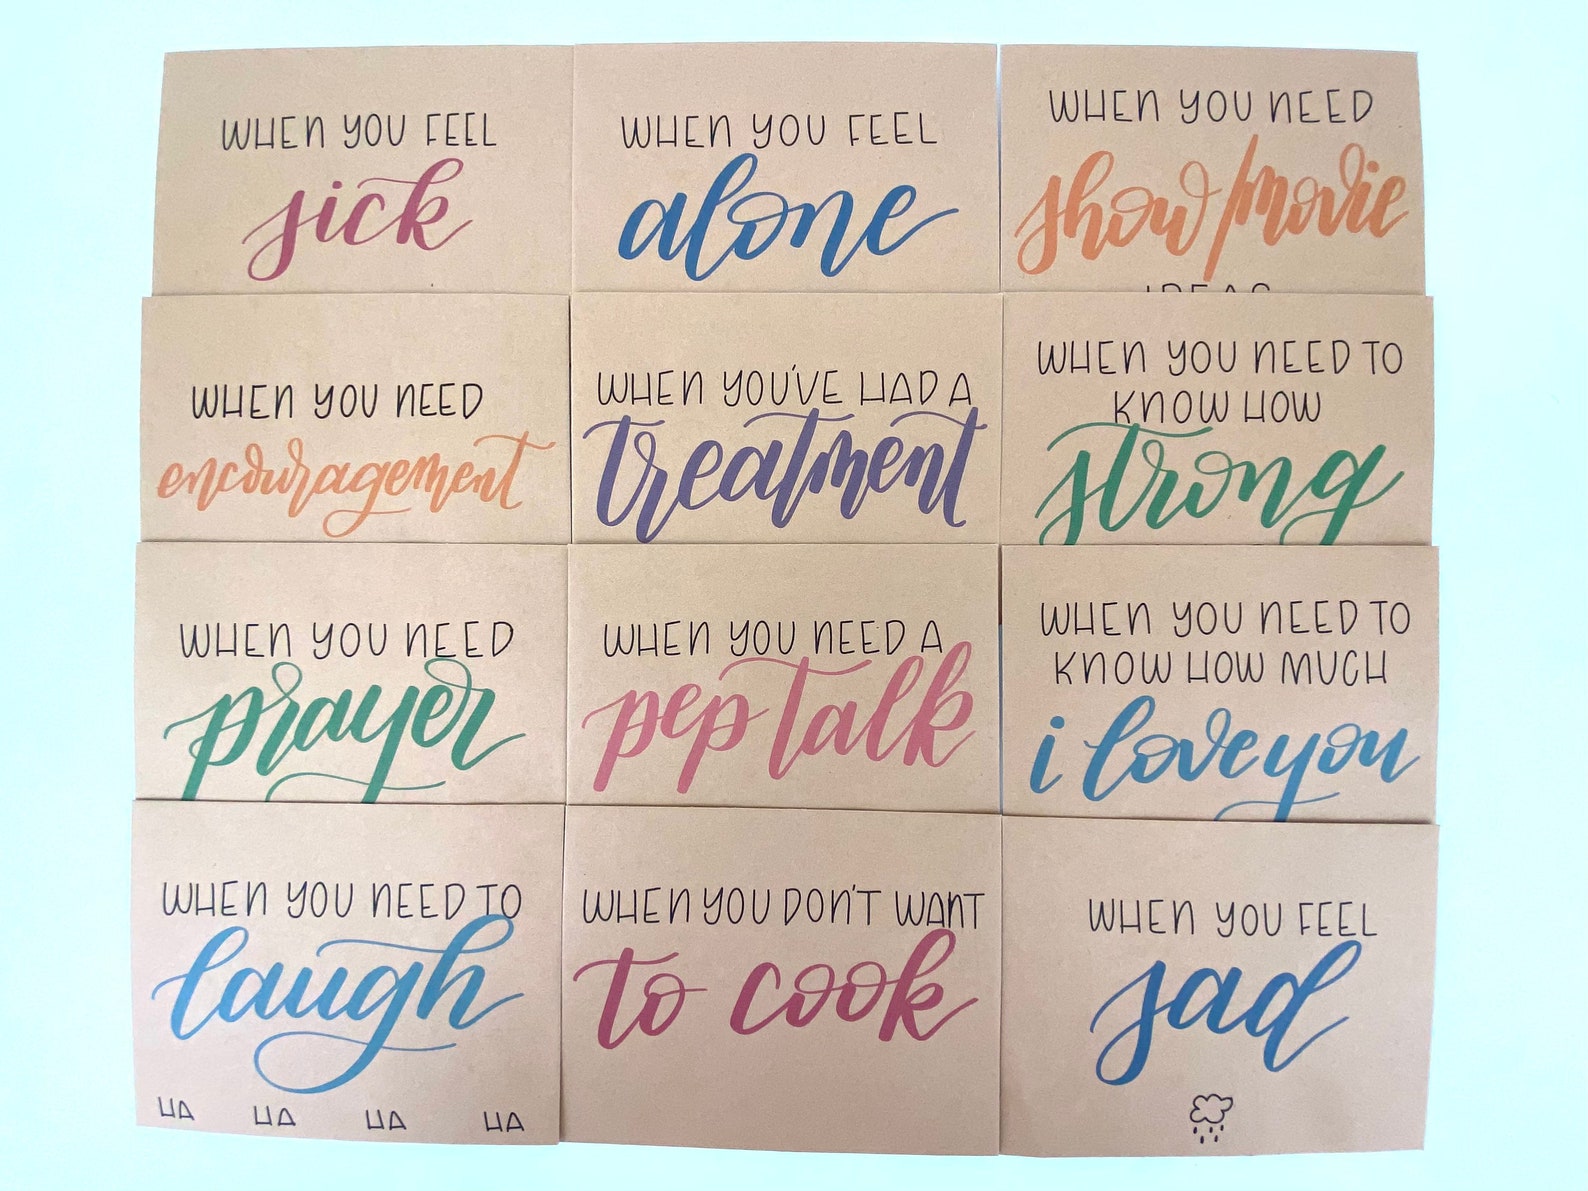 WHEN YOU FEEL
sick
WHEN YOU FEEL
alone
WHEN YOU NEED
show/movie
IDEAS
WHEN YOU NEED
encouragement
WHEN YOU'VE HAD A
treatment
WHEN YOU NEED TO
KNOW HOW
strong
WHEN YOU NEED
prayer
WHEN YOU NEED A
pep talk
WHEN YOU NEED TO
KNOW HOW MUCH
i love you
WHEN YOU NEED TO
laugh
HA HA HA HA
WHEN YOU DON'T WANT
to cook
WHEN YOU FEEL
sad